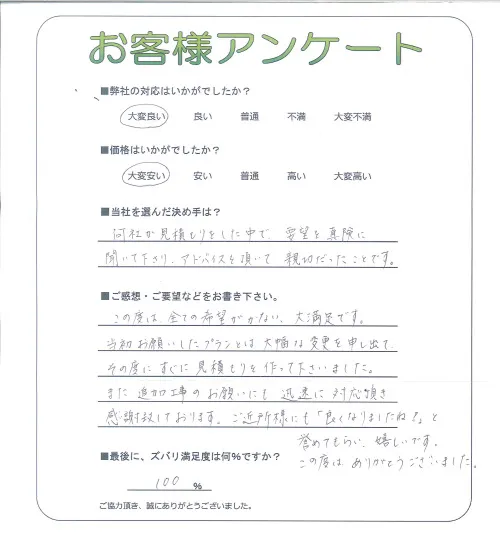 お客様アンケート
■弊社の対応はいかがでしたか？
大変良い 良い 普通 不満 大変不満
■価格はいかがでしたか？
大変安い 安い 普通 高い 大変高い
■当社を選んだ決め手は？
何社か見積もりをした中で、要望を真険に
聞いて下さり、アドバイスを頂いて 親切だったことです。
■ご感想・ご要望などをお書き下さい。
この度は、全ての希望がかない、大満足です。
当初お願いしたプランとは大幅な変更を申し出て、
その度にすぐに見積もりを作って下さいました。
また 追加工事のお願いにも 迅速に対応頂き
感謝致しております。ご近所様にも「良くなりましたね！」と
誉めてもらい、嬉しいです。
この度は ありがとうございました。
■最後に、ズバリ満足度は何％ですか？
100 ％
ご協力頂き、誠にありがとうございました。